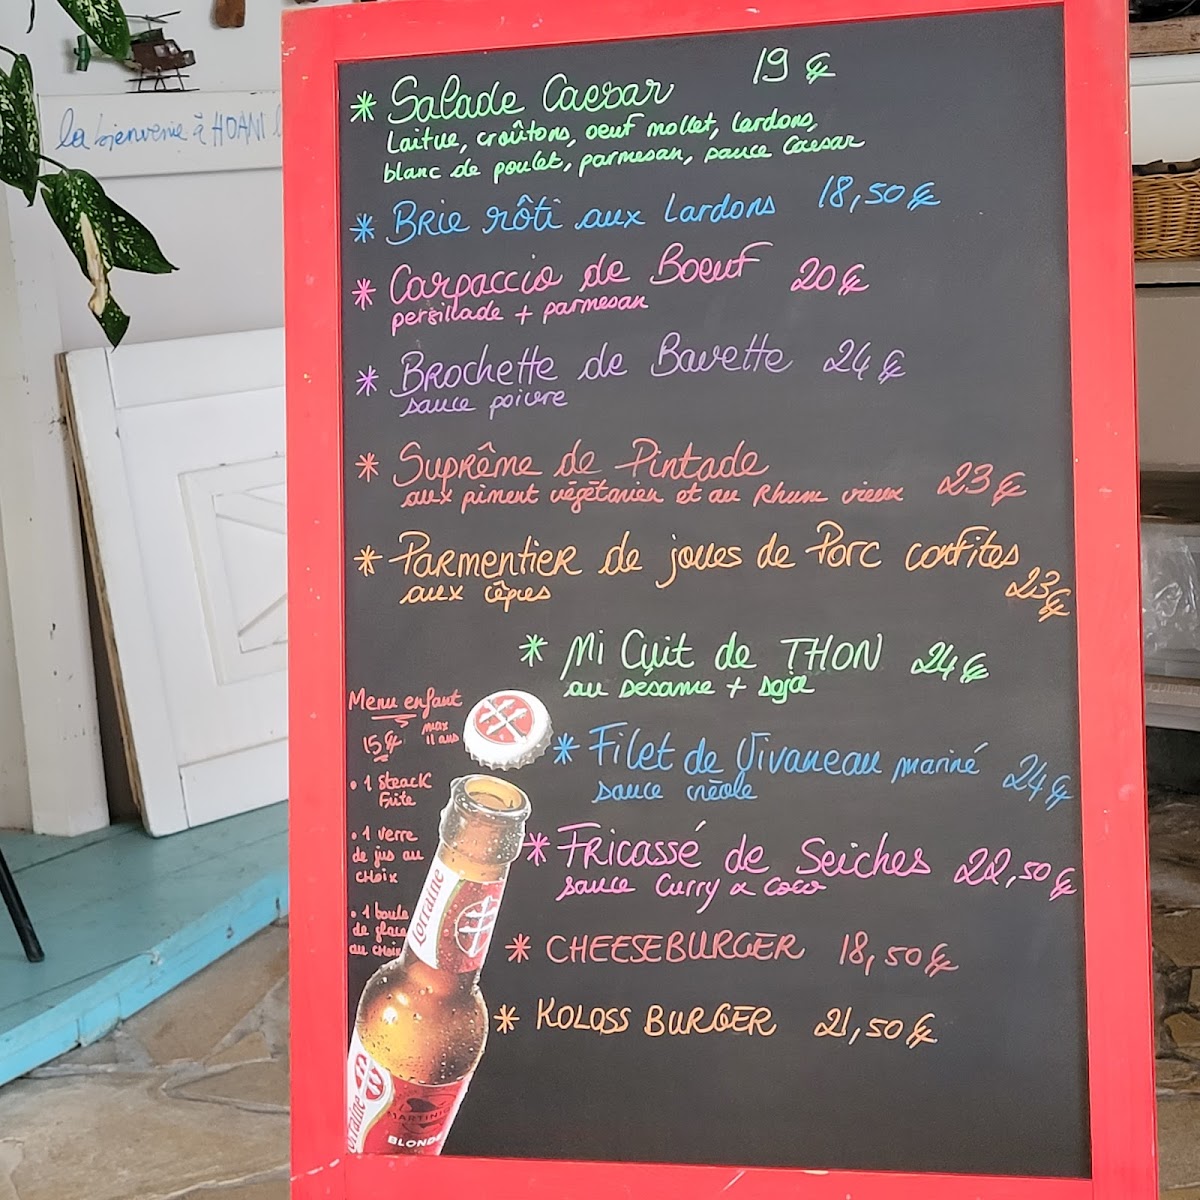 la bienvenie à HOANI
* Salade Caesar 19 €
Laitue, croûtons, oeuf mollet, lardons,
blanc de poulet, parmesan, sauce Caesar
* Brie rôti aux Lardons 18,50 €
* Carpaccio de Boeuf 20 €
persillade + parmesan
* Brochette de Bavette 24 €
sauce poivre
* Suprême de Pintade 23 €
aux piment végétarien et au Rhum vieux
* Parmentier de joues de Porc confites 23 €
aux cêpes
* Mi Cuit de THON 24 €
au sésame + soja
* Filet de Vivaneau mariné 24 €
sauce créole
* Fricassé de Seiches 22,50 €
sauce Curry & coco
* CHEESEBURGER 18,50 €
* KOLOSS BURGER 21,50 €
Menu enfant
max
11 ans
15 €
• 1 Steack
Frite
• 1 verre
de jus au
choix
• 1 boule
de glace
au choix
Lorraine
Lorraine
MARTINIQUE
BLONDE